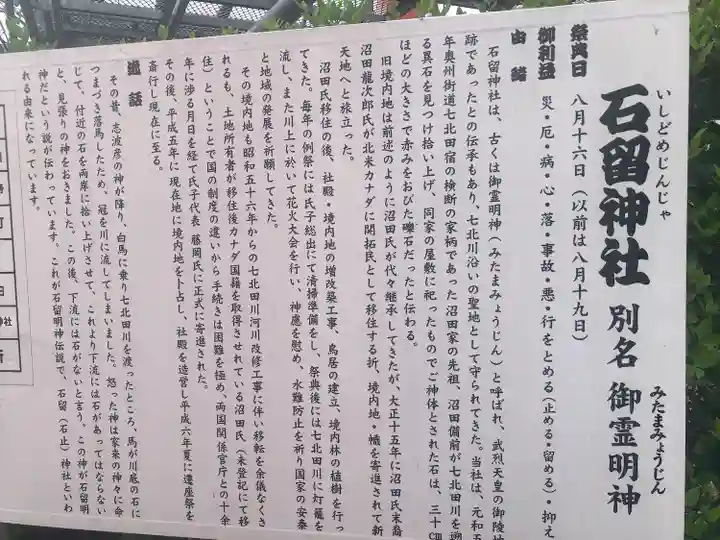 いしどめじんじゃ
石留神社
別名 御霊明神
みたまみょうじん
祭典日 八月十六日(以前は八月十九日)
御利益 災・厄・病・心・落・事故・悪・行をとめる(止める・留める)・抑え
由緒
石留神社は、古くは御霊明神(みたまみょうじん)と呼ばれ、武烈天皇の御陵地
跡であったとの伝承もあり、七北田川沿いの聖地として守られてきた。当社は、元和五
年奥州街道七北田宿の検断の家柄であった沼田家の先祖、沼田備前が七北田川を遡
る異石を見つけ拾い上げ、同家の屋敷に祀ったものでご神体とされた石は、三十㎝
ほどの大きさで赤みをおびた礫石だったと伝わる。
旧境内地は前述のように沼田氏が代々継承してきたが、大正十五年に沼田氏末裔
沼田龍次郎氏が北米カナダに開拓民として移住する折、境内地・幟を寄進されて新
天地へと旅立った。
沼田氏移住の後、社殿・境内地の増改築工事、鳥居の建立、境内林の植樹を行っ
てきた。毎年の例祭には氏子総出にて清掃準備をし、祭典後には七北田川に灯籠を
流し、また川上に於いて花火大会を行い、神慮を慰め、水難防止を祈り国家の安泰
と地域の発展を祈願してきた。
その境内地も昭和五十六年からの七北田川河川改修工事に伴い移転を余儀なくさ
れるも、土地所有者が移住後カナダ国籍を取得させれている沼田氏(未登記にて移
住)ということで国の制度の違いから手続きは困難を極め、両国関係官庁との十余
年に渉る月日を経て氏子代表 藤岡氏に正式に寄進された。
その後、平成五年に現在地に境内地を卜占し、社殿を造営し平成六年夏に遷座祭を
斎行し現在に至る。
逸話
その昔、志波彦の神が降り、白馬に乗り七北田川を渡ったところ、馬が川底の石に
つまづき落馬したため、冠を川に流してしまいました。怒った神は家来の神々に命
じて、付近の石を両岸に拾い上げさせて、これより下流には石があってはならない
と、見張りの神をおきました。この後、下流には石がないと言う、この神が石留明
神だという説が伝わっています。これが石留明神伝説で、石留(石止)神社といわ
れる由来になっています。
町
日
神社